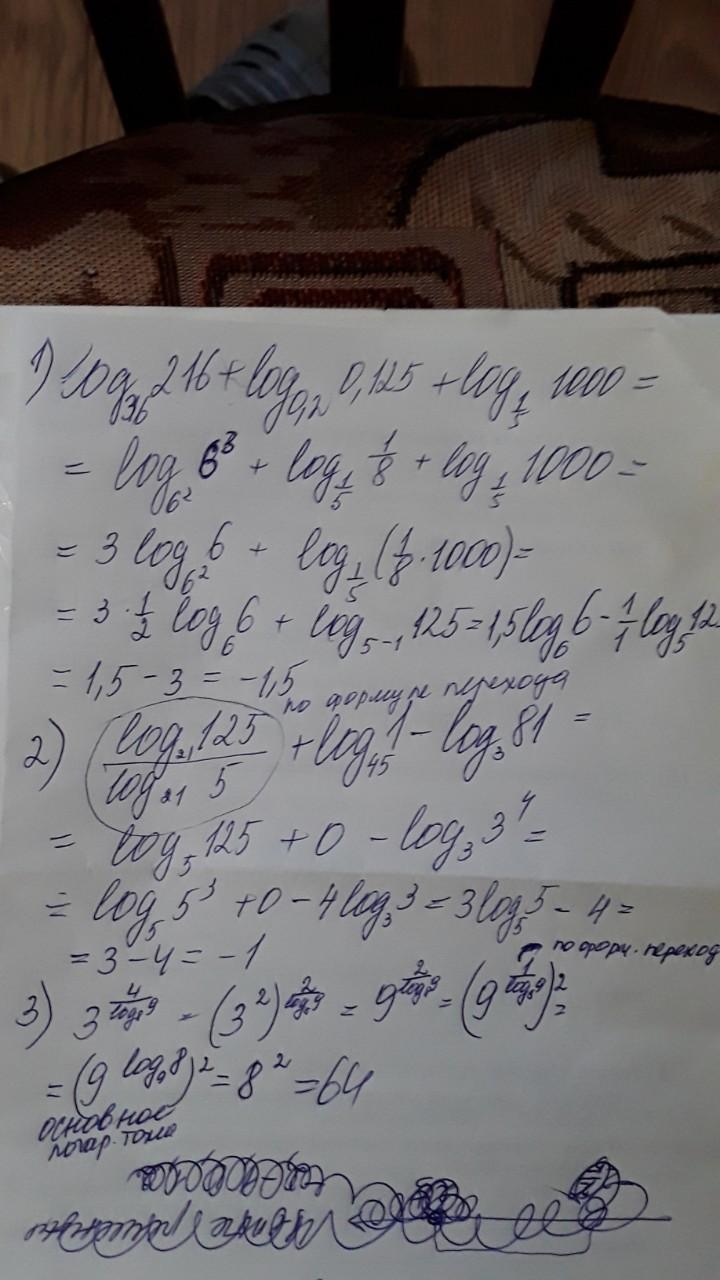 1) log₃₆ 216 + log₀,₂ 0,125 + log_{1/5} 1000 =
= log_{6²} 6³ + log_{1/5} 1/8 + log_{1/5} 1000 =
= 3 log_{6²} 6 + log_{1/5} (1/8 · 1000) =
= 3 · 1/2 log₆ 6 + log_{5⁻¹} 125 = 1,5 log₆ 6 - 1/1 log₅ 12
= 1,5 - 3 = -1,5
по формуле перехода
2) log₂₁ 125 / log₂₁ 5 + log₄₅ 1 - log₃ 81 =
= log₅ 125 + 0 - log₃ 3⁴ =
= log₅ 5³ + 0 - 4 log₃ 3 = 3 log₅ 5 - 4 =
= 3 - 4 = -1
по форм. переход
3) 3^{4/log₈ 9} = (3²)^{2/log₈ 9} = 9^{2/log₈ 9} = (9^{1/log₈ 9})² =
= (9^{log₉ 8})² = 8² = 64
основное
логар. тожд